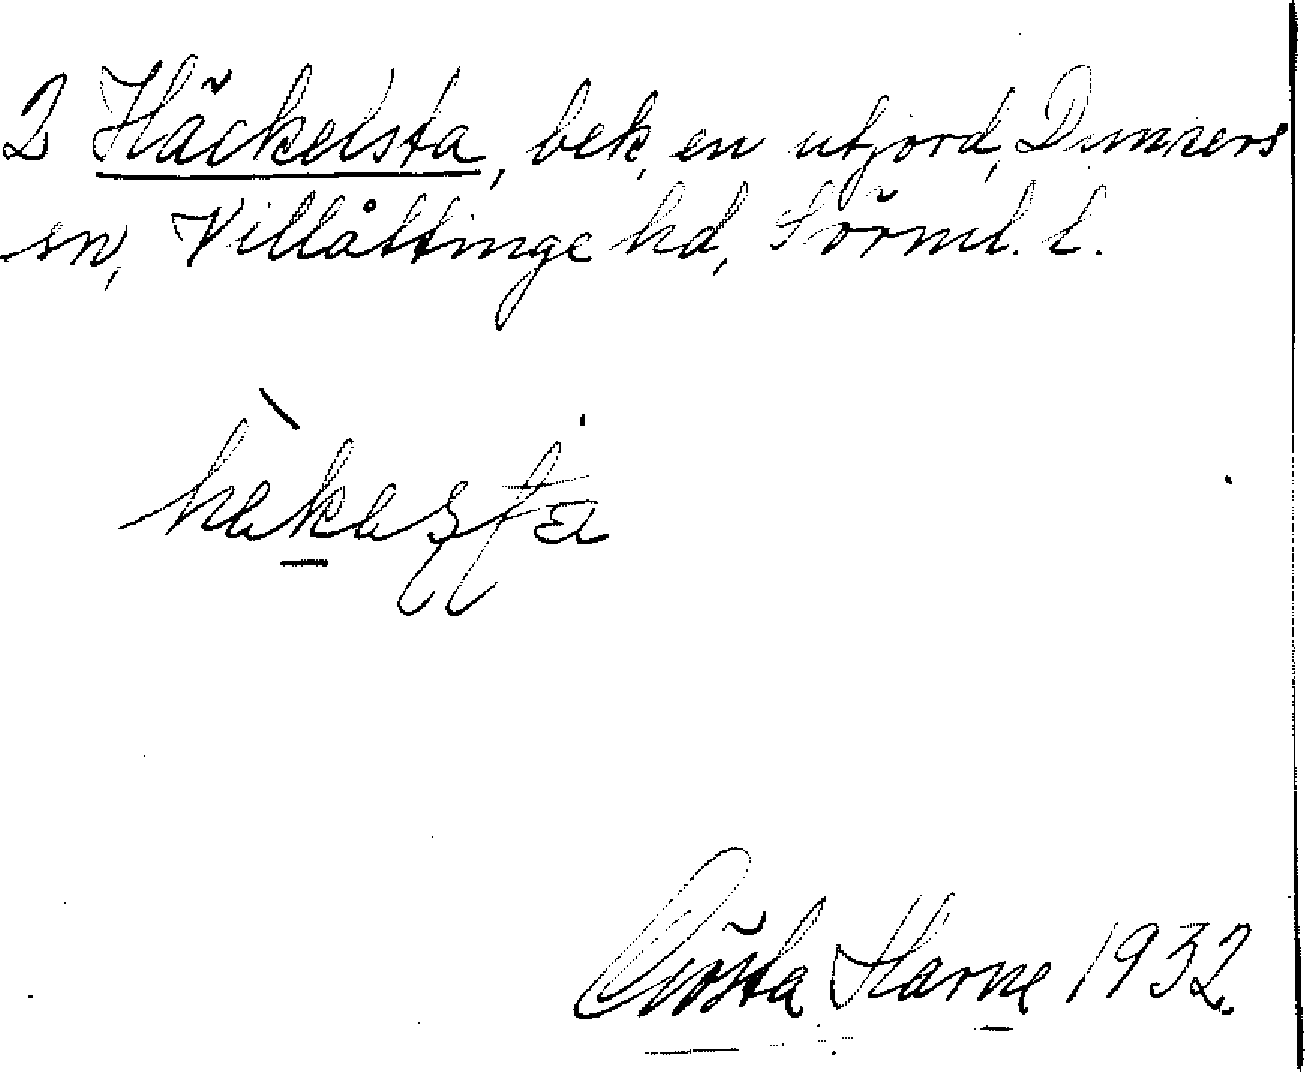 2 Häckelsta, bek, en utjord, Dunkers
sn, Villåttinge hd, Sörml. l.
hàkasta
Gösta Harne 1932.